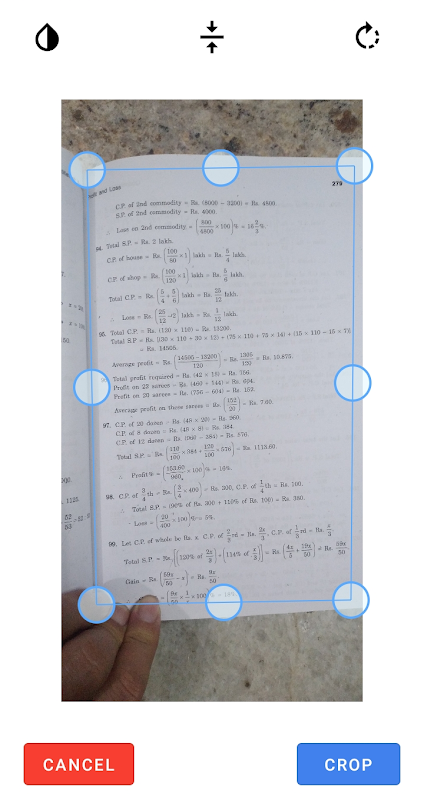 fit and Loss 279
C.P. of 2nd commodity = Rs. (8000 – 3200) = Rs. 4800.
S.P. of 2nd commodity = Rs. 4000.
∴ Loss on 2nd commodity = (800/4800 × 100)% = 16 2/3 %.
94. Total S.P. = Rs. 2 lakh.
C.P. of house = Rs. (100/80 × 1) lakh = Rs. 5/4 lakh.
C.P. of shop = Rs. (100/120 × 1) lakh = Rs. 5/6 lakh.
Total C.P. = Rs. (5/4 + 5/6) lakh = Rs. 25/12 lakh.
∴ Loss = Rs. (25/12 – 2) lakh = Rs. 1/12 lakh.
95. Total C.P. = Rs. (120 × 110) = Rs. 13200.
Total S.P. = Rs. [(30 × 110 + 30 × 12) + (75 × 110 + 75 × 14) + (15 × 110 – 15 × 7)]
= Rs. 14505.
Average profit = Rs. (14505 – 13200/120) = Rs. 1305/120 = Rs. 10.875.
Total profit required = Rs. (42 × 18) = Rs. 756.
Profit on 22 sarees = Rs. (460 + 144) = Rs. 604.
Profit on 20 sarees = Rs. (756 – 604) = Rs. 152.
Average profit on these sarees = Rs. (152/20) = Rs. 7.60.
97. C.P. of 20 dozen = Rs. (48 × 20) = Rs. 960.
C.P. of 8 dozen = Rs. (48 × 8) = Rs. 384.
C.P. of 12 dozen = Rs. (960 – 384) = Rs. 576.
Total S.P. = Rs. (110/100 × 384 + 120/100 × 576) = Rs. 1113.60.
∴ Profit% = (153.60/960 × 100)% = 16%.
98. C.P. of 3/4 th = Rs. (3/4 × 400) = Rs. 300, C.P. of 1/4 th = Rs. 100.
∴ Total S.P. = (90% of Rs. 300 + 110% of Rs. 100) = Rs. 380.
Loss = (20/400 × 100)% = 5%.
99. Let C.P. of whole be Rs. x. C.P. of 2/3 rd = Rs. 2x/3, C.P. of 1/3 rd = Rs. x/3.
Total S.P. = Rs. [(120% of 2x/3) + (114% of x/3)] = Rs. (4x/5 + 19x/50) = Rs. 59x/50
Gain = Rs. (59x/50 – x) = Rs. 9x/50
= (9x/50 × 1/x × 100)% = 18%.
CANCEL
CROP